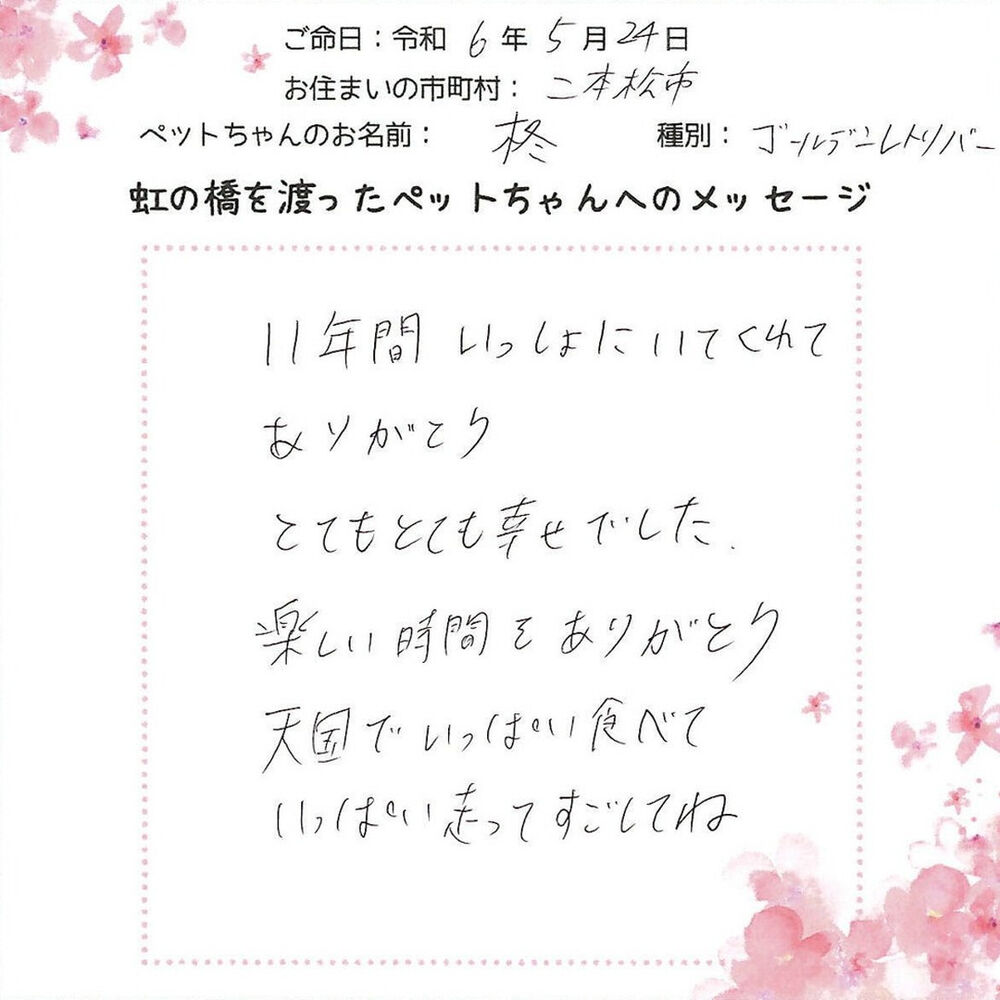 ご命日：令和 6 年 5 月 24 日
お住まいの市町村： 二本松市
ペットちゃんのお名前： 柊 種別： ゴールデンレトリバー
虹の橋を渡ったペットちゃんへのメッセージ
11年間 いっしょにいてくれて
ありがとう
とてもとても幸せでした.
楽しい時間をありがとう
天国でいっぱい食べて
いっぱい走ってすごしてね